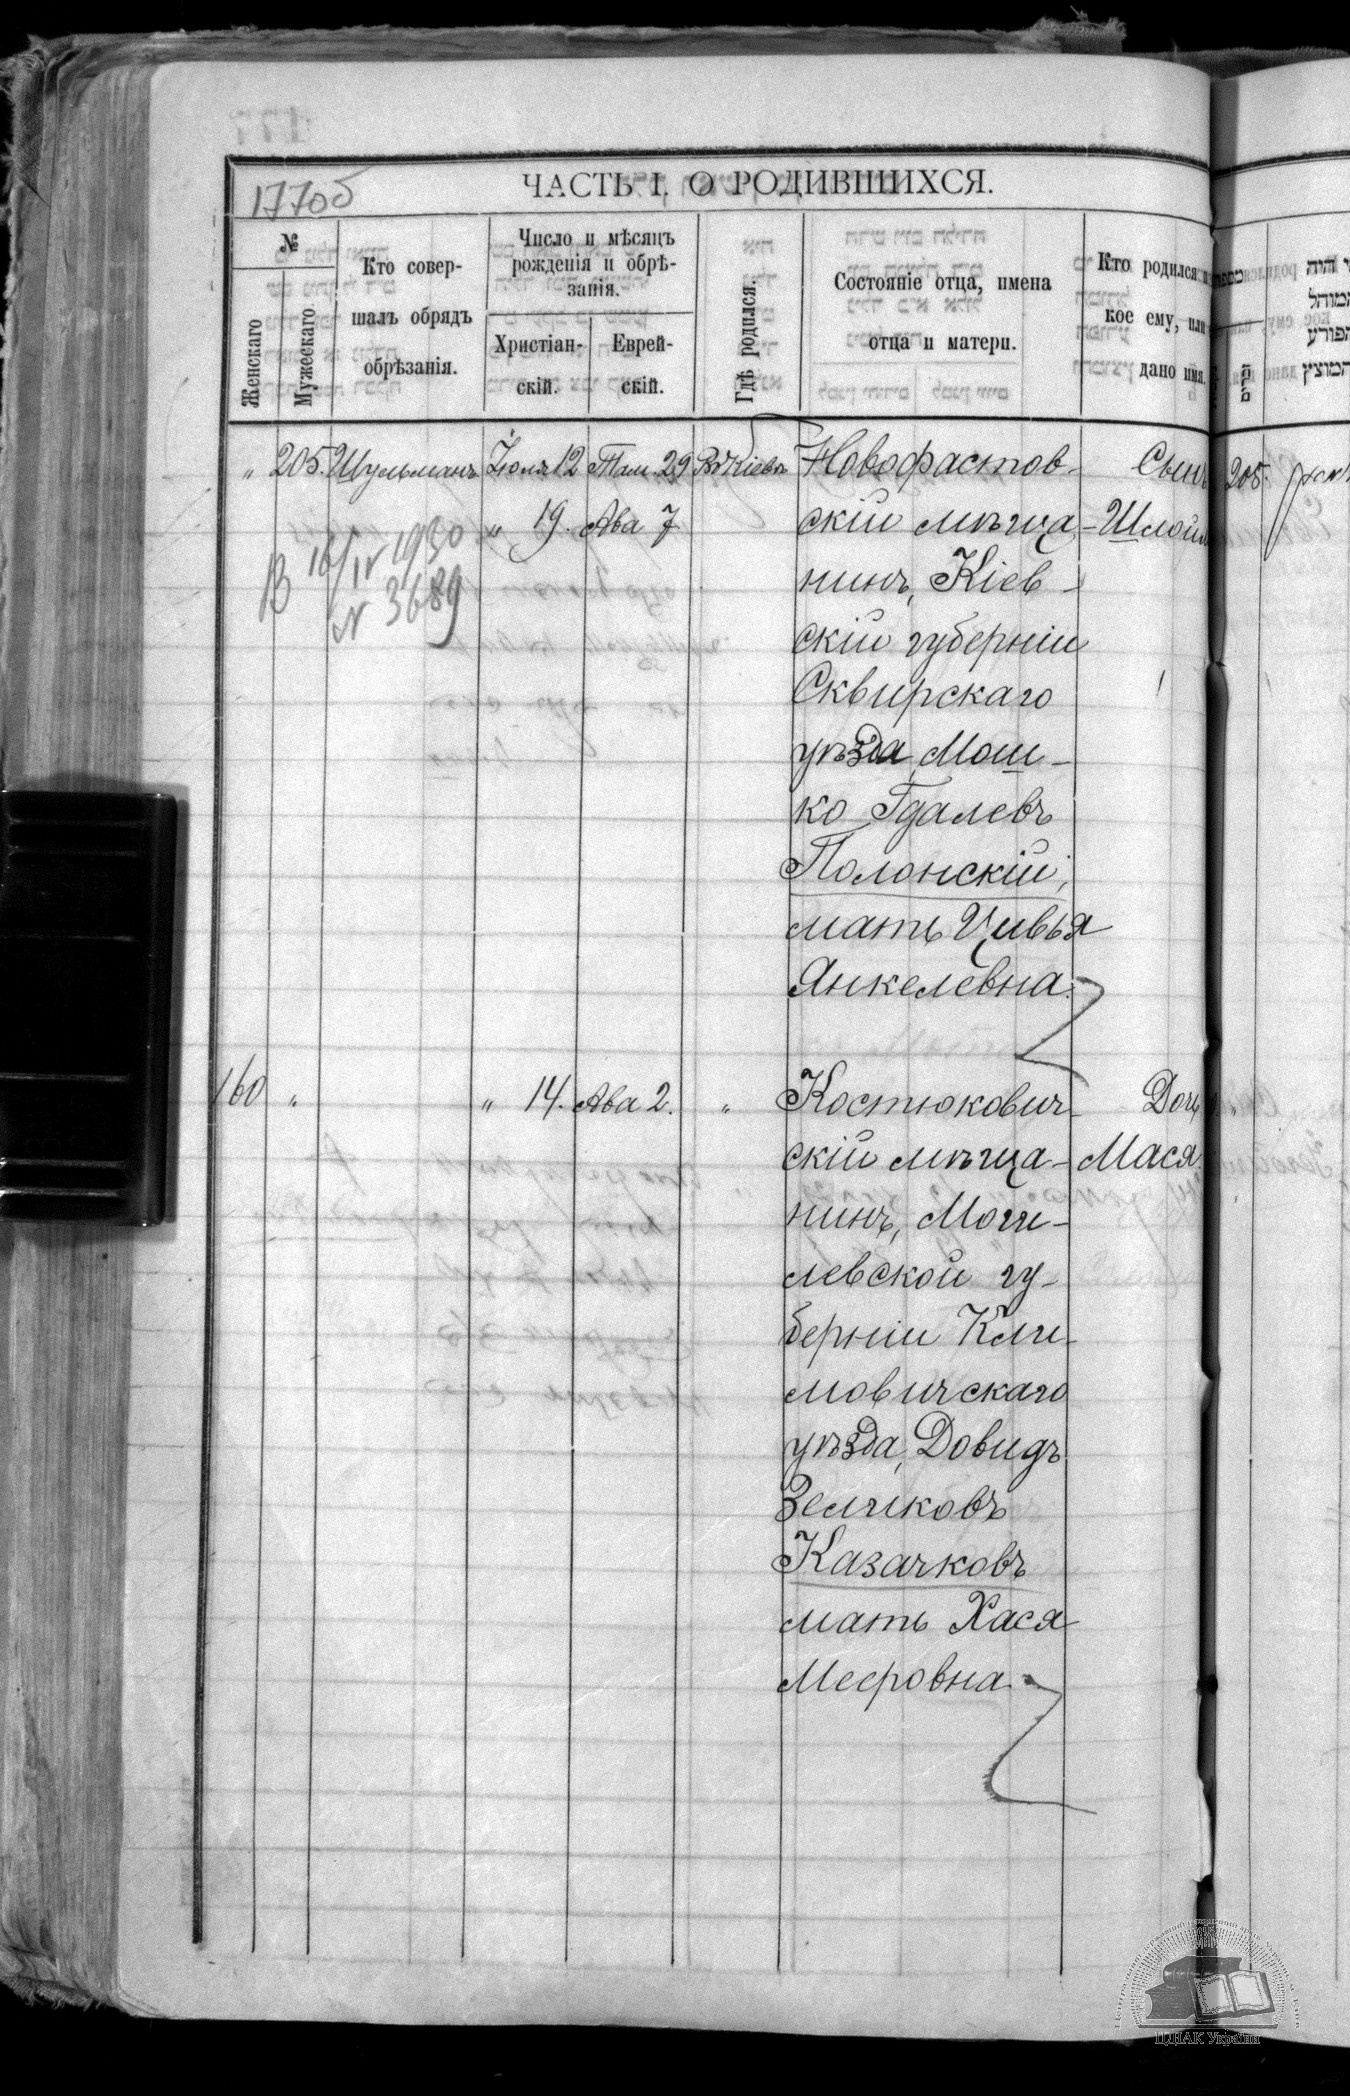 177об
ЧАСТЬ I. О РОДИВШИХСЯ.
№
Женскаго
Мужескаго
Кто совер-
шалъ обрядъ
обрѣзанія.
Число и мѣсяцъ
рожденія и обрѣ-
занія.
Христіан-
скій.
Еврей-
скій.
Гдѣ родился.
Состояніе отца, имена
отца и матери.
Кто родился и
кое ему, или
дано имя.
„ 205. Шульманъ Іюля 12 Там. 29 Въ Кіевѣ Новофастов- Сынъ 205.
„ 19. Ава 7 скій мѣща- Шлойм
В 16/IV 1930
N 3689
нинъ, Кіев-
скій губерніи
Сквирскаго
уѣзда, Мош-
ко Гдалевъ
Полонскій,
мать Цивья
Янкелевна.
160 „ „ 14. Ава 2. „ Костюкович- Дочь „
скій мѣща- Мася.
нинъ, Моги-
левской гу-
берніи Кли-
мовичскаго
уѣзда, Довидъ
Зеликовъ
Казачковъ
мать Хася
Мееровна
ЦДІАК України